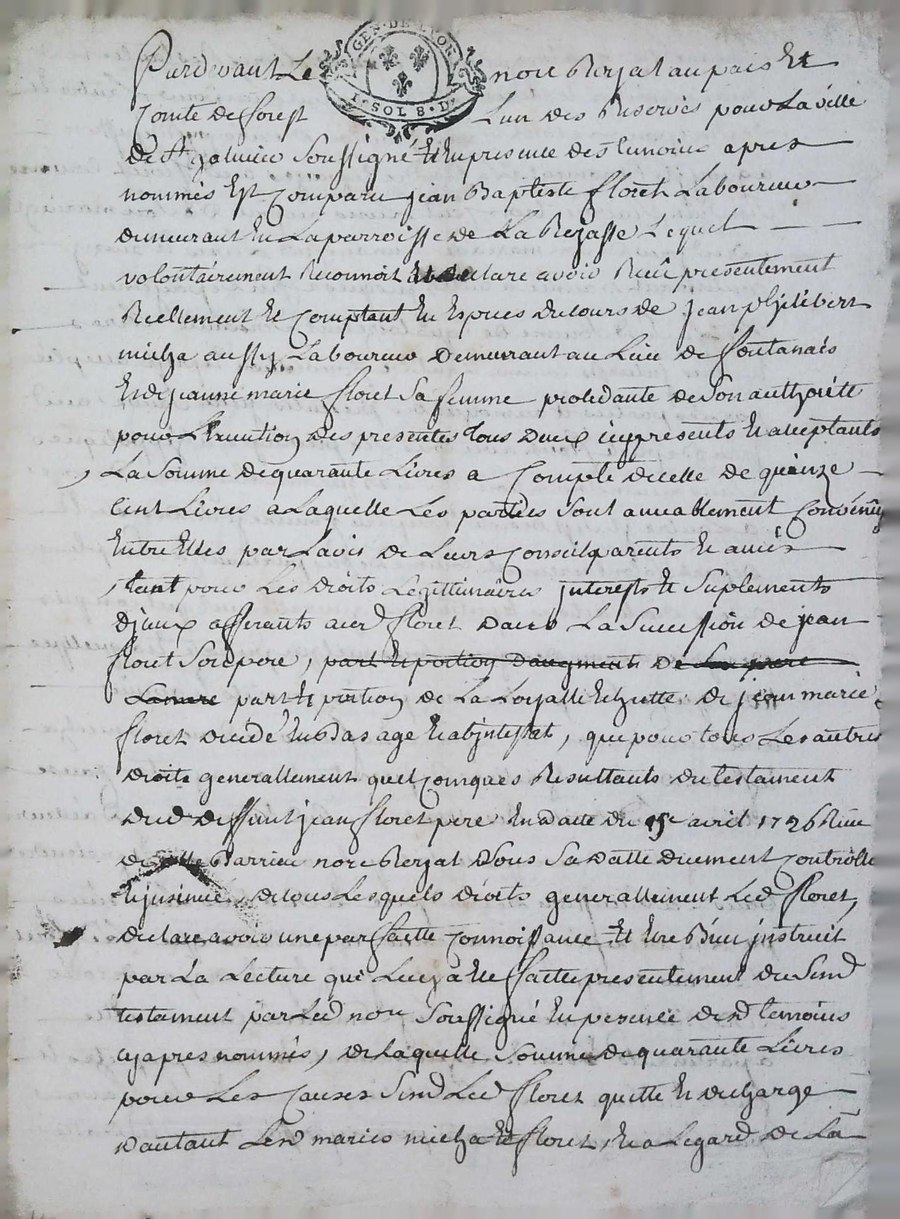 Pardevant Le nore Royal au païs Et
GEN. DE LYON
1. SOL 8. Drs
Comté de forest L'un des Reservés pour La ville
de St galmier Soussigné Et En presence des temoins apres
nommés Est Comparu jean Baptiste floret Laboureur
demeurant En La parroisse de La Rejasse Lequel
volontairement Reconnoit Et declare avoir Reçû presentement
Reellement Et Comptant En Especes du Cours de jean philibert
micha aussy Laboureur demeurant au Lieu de fontanais
Et de jeanne marie floret Sa femme procedante de Son authorité
pour L'Execution des presentes tous deux icy presents Et acceptants
La Somme de quarante Livres a Compte de Celle de quinze
Cent Livres a Laquelle Les parties Sont amiablement Convenües
Entre Elles par L'avis de Leurs Conseil parents Et amis
tant pour Les droits Legitimaires interests Et Suplements
d'jceux afferants aud floret dans La Succession de jean
floret Son pere, part Et portion d'augment de
La mere part Et portion de La Loyalle Echutte de jean marie
floret decedé En bas age Et abjntestat, que pour tous Les autres
droits generallement quelconques Resultants du testament
dud deffunt jean floret pere En datte du 15e avril 1726 Reçu
de Barrieu nore Royal Sous Sa datte duement Controllé
Et jnsinué, de tous Lesquels droits generallement Led floret,
declare avoir une parfaitte Connoissance Et Etre Bien jnstruit
par La Lecture qui Luy a Eté faitte presentement du Susd
testament par Led nore Soussigné En presence desd temoins
cy apres nommés, de Laquelle Somme de quarante Livres
pour Les Causes Susd Led floret quitte Et decharge
d'autant Lesd mariés micha Et floret, Et a L'egard de La